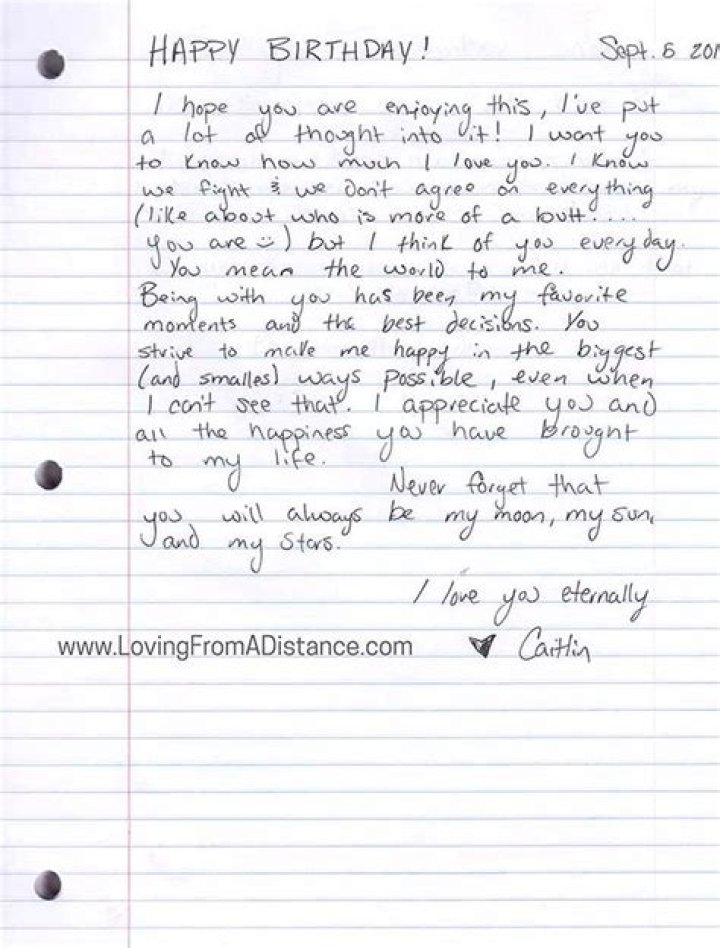 HAPPY BIRTHDAY! Sept. 5 201
I hope you are enjoying this, I've put
a lot of thought into it! I want you
to know how much I love you. I know
we fight & we don't agree on everything
(like about who is more of a butt....
you are :)) but I think of you everyday.
You mean the world to me.
Being with you has been my favorite
moments and the best decisions. You
strive to make me happy in the biggest
(and smalles) ways possible, even when
I can't see that. I appreciate you and
all the happiness you have brought
to my life.
Never forget that
you will always be my moon, my sun,
and my stars.
I love you eternally
www.LovingFromADistance.com ♥ Caitlin